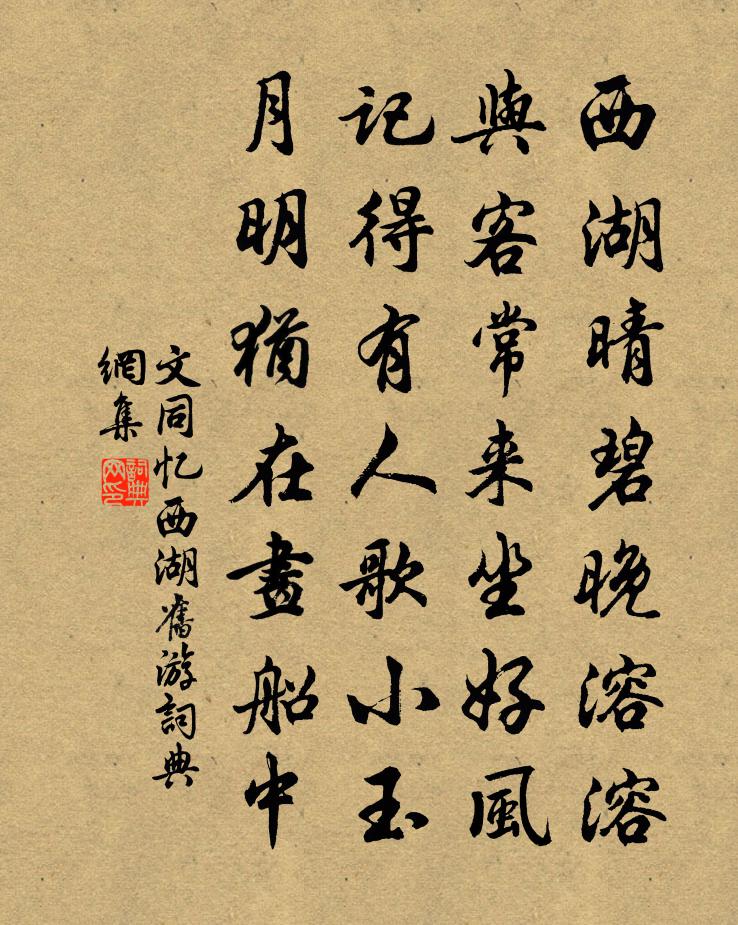 西湖晴碧晚溶溶
與客常来坐好風
記得有人歌小玉
月明猶在畫船中
文同忆西湖舊游詞典
網集
詞典網印